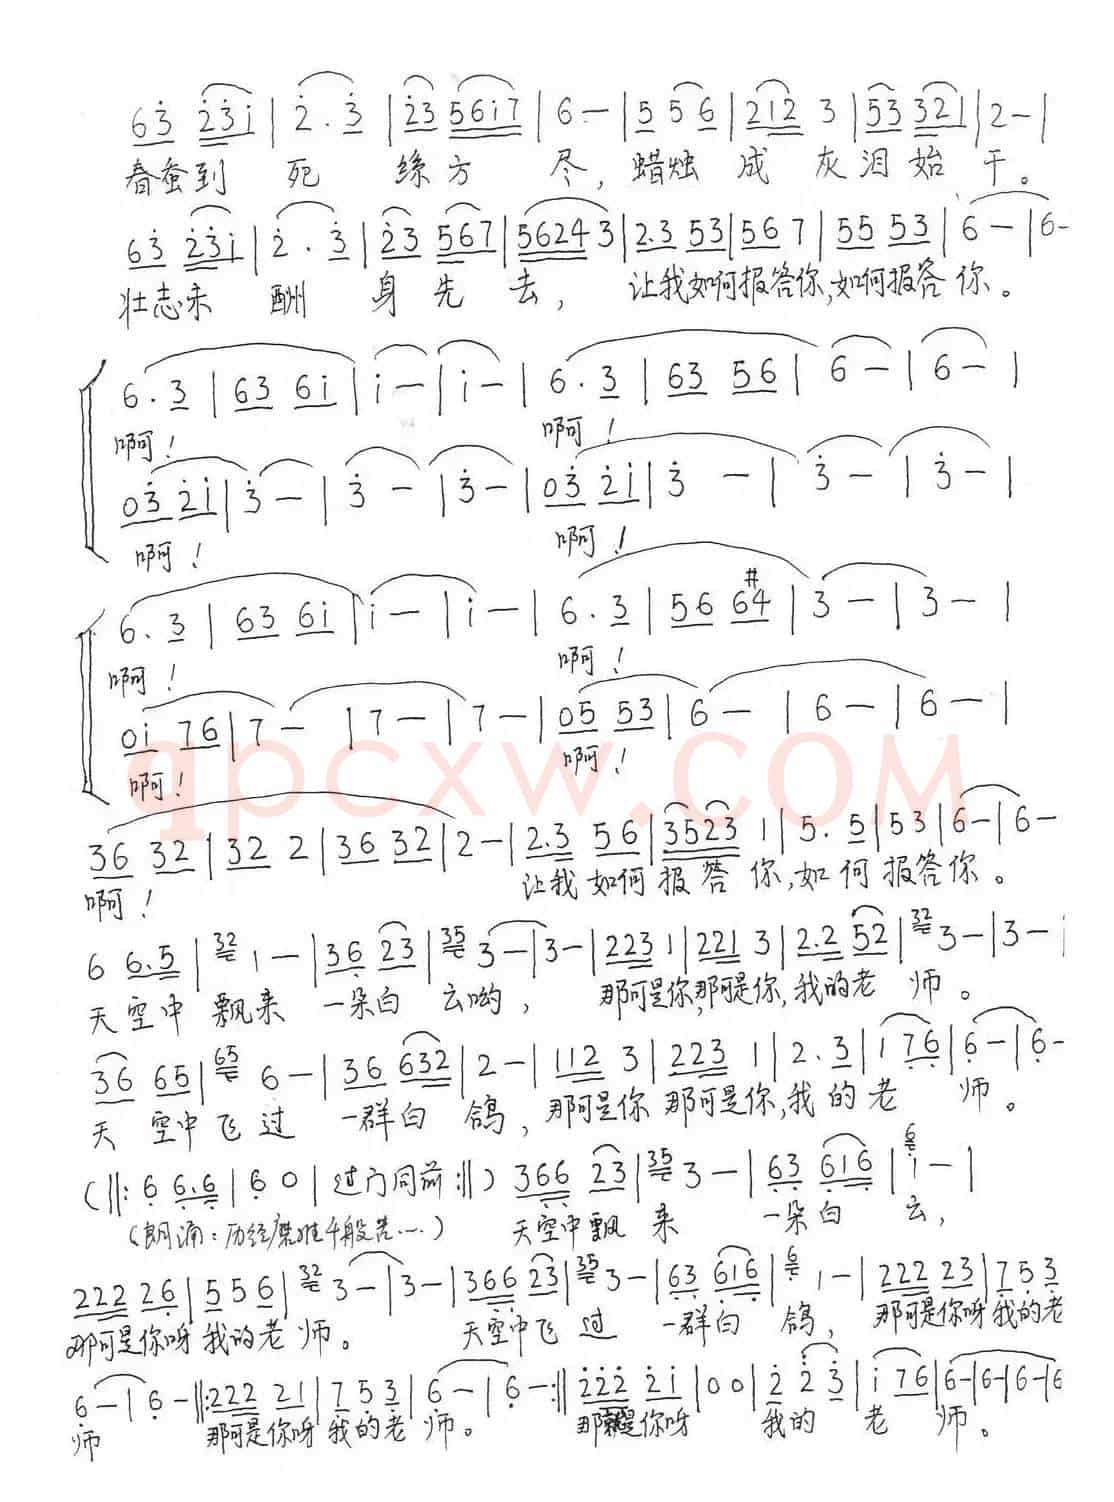 6 3̇ 2̇3̇1̇ | 2̇ . 3̇ | 2̇3 561̇7 | 6 — | 5 5 6 | 212 3 | 53 321 | 2 — |
春蚕到 死 絲方 尽，蜡烛 成 灰泪始 干。
63̇ 2̇3̇1̇ | 2̇ . 3̇ | 2̇3 567 | 5624 3 | 2.3 53 | 56 7 | 55 53 | 6 — | 6-
壮志未 酬 身先 去， 让我如何报答你，如何报答 你。
6 . 3 | 63 61̇ | 1̇ — | 1̇ — | 6 . 3 | 63 56 | 6 — | 6 — |
啊！ 啊！
03̇ 2̇1̇ | 3̇ — | 3̇ — | 3̇ — | 03̇ 2̇1̇ | 3̇ — | 3̇ — | 3̇ — |
啊！ 啊！
6 . 3 | 63 61̇ | 1̇ — | 1̇ — | 6 . 3 | 56 6#4 | 3 — | 3 — |
啊！ 啊！
01̇ 76 | 7 — | 7 — | 7 — | 05 53 | 6 — | 6 — | 6 — |
啊！ 啊！
qpcxw.com
36 32 | 32 2 | 36 32 | 2 — | 2.3 56 | 3523 1 | 5. 5 | 53 | 6 — | 6-
啊！ 让我 如何报答 你，如何 报答你。
6 6.5 | 32 1 — | 36 23 | 35 3 — | 3 — | 223 1 | 221 3 | 2.2 52 | 32 3 — | 3 — |
天空中 飘来 一朵白 云哟， 那可是你，那可是你，我的老 师。
36 65 | 65 6 — | 36 632 | 2 — | 112 3 | 223 1 | 2.3 | 1 76 | 6̣ — | 6̣-
天 空中飞过 一群白 鸽，那可是你 那可是你，我的老 师。
(‖: 6̣ 6̣.6̣ | 6̣ 0 | 过门同前 :‖) 366 23 | 35 3 — | 6̣3 6̣16̣ | 6 1̇ — |
(朗诵：历经磨难千般苦…) 天空中飘 来 一朵白 云，
222 26̣ | 5̣ 5 6̣ | 32 3 — | 3 — | 366 23 | 35 3 — | 6̣3 6̣16̣ | 6 1 — | 222 23 | 7̣ 5̣ 3̣
那可是你呀 我的老师。 天空中飞过 一群白 鸽， 那可是你呀我的老
6̣ — | 6̣ - ‖: 222 21 | 7̣ 5̣ 3̣ | 6̣ — | 6̣ - :‖ 2̇2̇2̇ 2̇1̇ | 0 0 | 2̇ 2̇ 3̇ | 1̇ 76 | 6- | 6- | 6- | 6
师 那可是你呀 我的老师。 那可是你呀 我的 老 师。